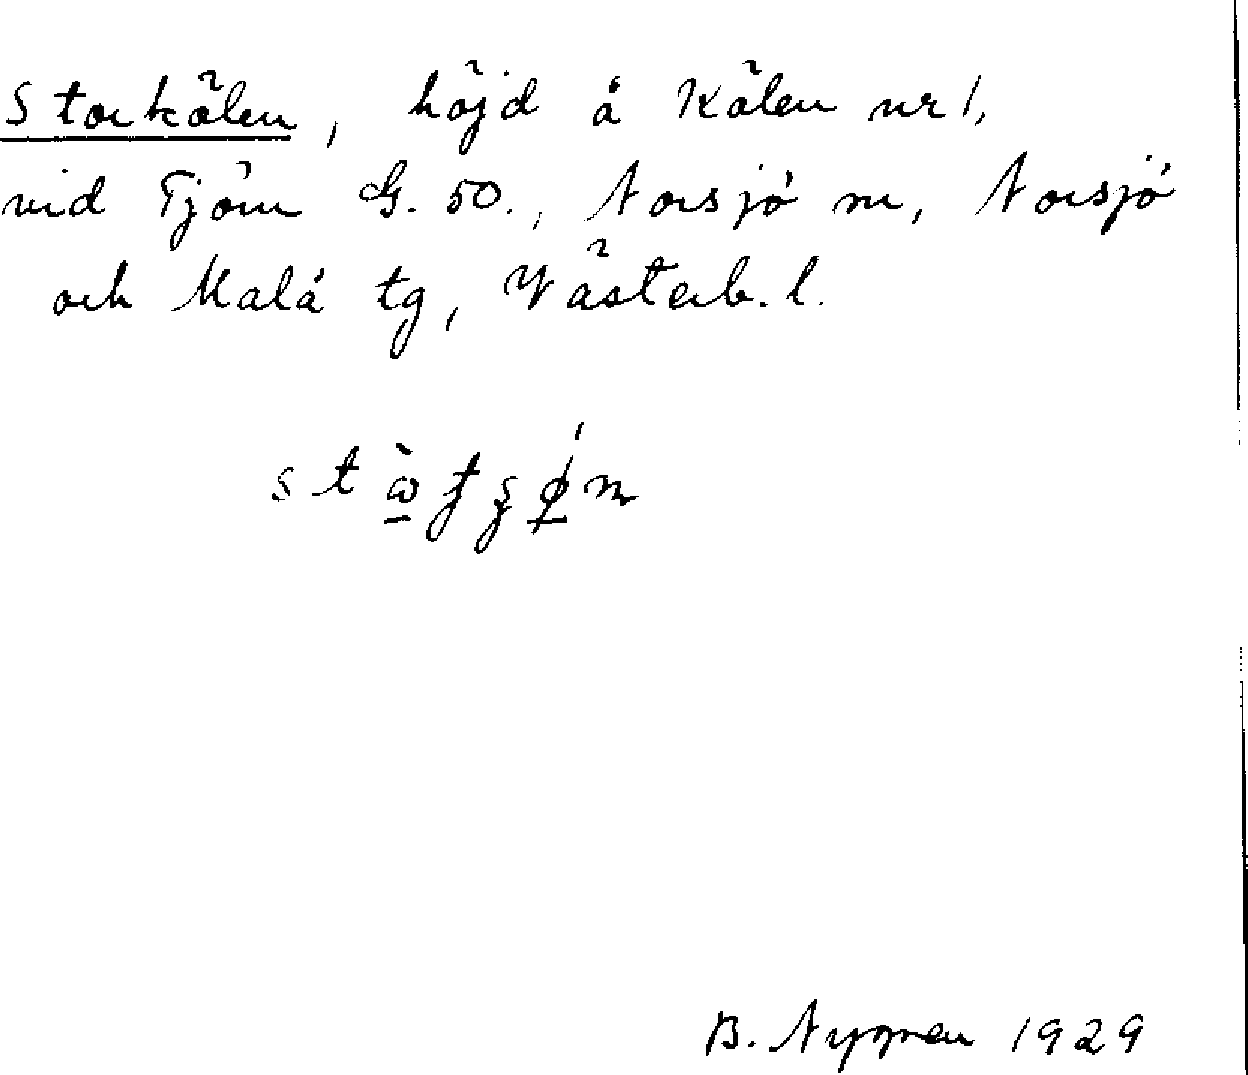 Storkölen, höjd å Kölen nr 1,
vid Tjörn G. 50., Norsjö sn, Norsjö
och Malå tg, Västerb. l.
B. Nygren 1929